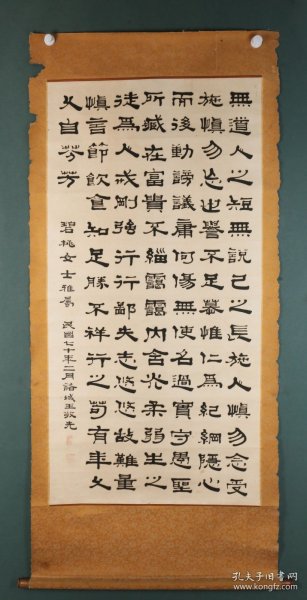 無道人之短無說己之長施人慎勿念受
施慎勿忘世譽不足慕惟仁為紀綱隱心
而後動謗議庸何傷無使名過實守愚聖
所臧在富貴不緇靄靄內含光柔弱生之
徒為人戒剛強行行鄙夫志悠悠故難量
慎言節飲食知足勝不祥行之苟有年久
久自芬芳
碧桃女士雅屬 民國七十年二月諸城王敬先
孔夫子旧书网